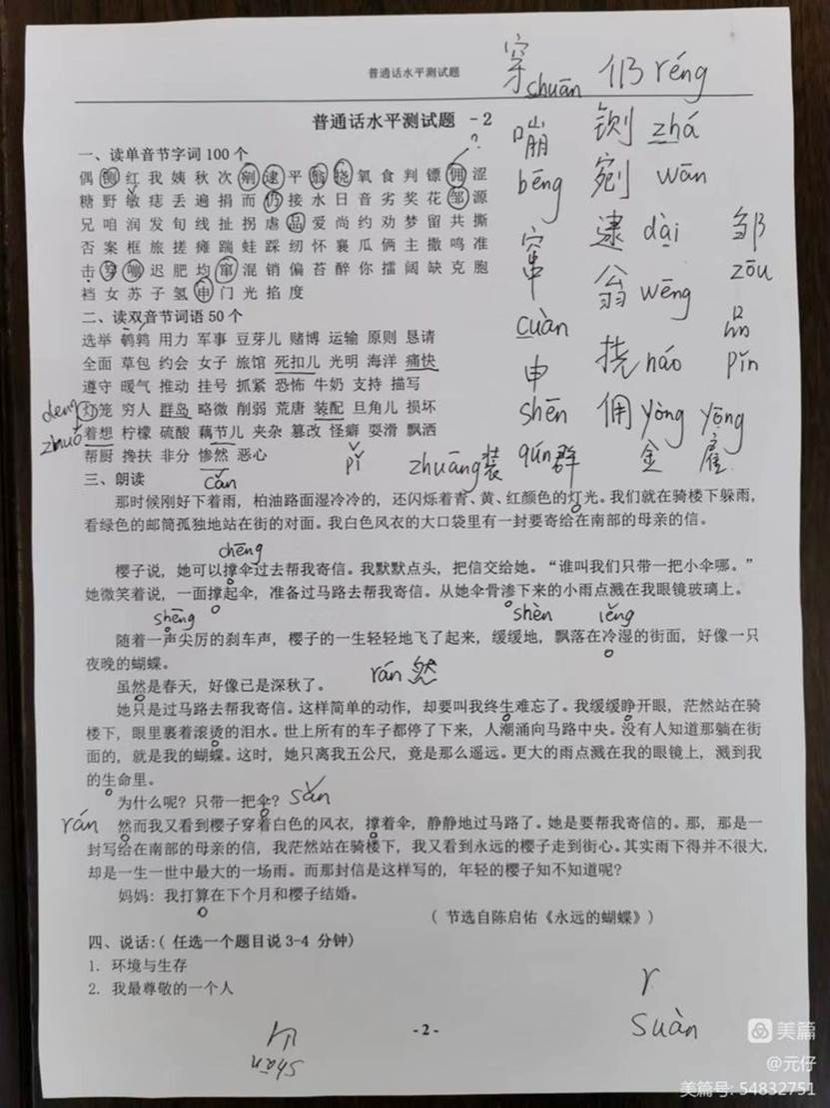 普通话水平测试题
普通话水平测试题 -2
一、读单音节字词100个
偶 铡 红 我 姨 秋 次 剜 逮 平 翁 挠 氧 食 判 镖 佣 涩
糖 野 敏 痣 丢 遍 捐 而 仍 接 水 日 音 劣 奖 花 邹 源
兄 咱 润 发 旬 线 扯 拐 虐 品 爱 尚 约 劝 梦 留 共 撕
否 案 框 旅 搓 瘫 踹 蛙 踩 纫 怀 襄 瓜 俩 主 撒 鸣 准
击 穿 嘣 迟 肥 均 窜 混 销 偏 苔 醉 你 擂 阔 缺 克 胞
裆 女 苏 子 氢 申 门 光 掐 度
二、读双音节词语50个
选举 鹌鹑 用力 军事 豆芽儿 赌博 运输 原则 恳请
全面 草包 约会 女子 旅馆 死扣儿 光明 海洋 痛快
遵守 暖气 推动 挂号 抓紧 恐怖 牛奶 支持 描写
灯笼 穷人 群岛 略微 削弱 荒唐 装配 旦角儿 损坏
着想 柠檬 硫酸 藕节儿 夹杂 篡改 怪癖 耍滑 飘洒
帮厨 搀扶 非分 惨然 恶心
三、朗读
那时候刚好下着雨，柏油路面湿冷冷的，还闪烁着青、黄、红颜色的灯光。我们就在骑楼下躲雨，
看绿色的邮筒孤独地站在街的对面。我白色风衣的大口袋里有一封要寄给在南部的母亲的信。
chēng
樱子说，她可以撑伞过去帮我寄信。我默默点头，把信交给她。“谁叫我们只带一把小伞哪。”
她微笑着说，一面撑起伞，准备过马路去帮我寄信。从她伞骨渗下来的小雨点溅在我眼镜玻璃上。
shēng shèn lěng
随着一声尖厉的刹车声，樱子的一生轻轻地飞了起来，缓缓地，飘落在冷湿的街面，好像一只
夜晚的蝴蝶。
rán 然
虽然是春天，好像已是深秋了。
她只是过马路去帮我寄信。这样简单的动作，却要叫我终生难忘了。我缓缓睁开眼，茫然站在骑
楼下，眼里裹着滚烫的泪水。世上所有的车子都停了下来，人潮涌向马路中央。没有人知道那躺在街
面的，就是我的蝴蝶。这时，她只离我五公尺，竟是那么遥远。更大的雨点溅在我的眼镜上，溅到我
的生命里。
为什么呢？只带一把伞？ sǎn
rán
然而我又看到樱子穿着白色的风衣，撑着伞，静静地过马路了。她是要帮我寄信的。那，那是一
封写给在南部的母亲的信，我茫然站在骑楼下，我又看到永远的樱子走到街心。其实雨下得并不很大，
却是一生一世中最大的一场雨。而那封信是这样写的，年轻的樱子知不知道呢？
妈妈：我打算在下个月和樱子结婚。
( 节选自陈启佑《永远的蝴蝶》)
四、说话:( 任选一个题目说3-4 分钟)
1. 环境与生存
2. 我最尊敬的一个人
- 2 -
穿 shuān 仍 réng
嘣 bēng 铡 zhá
剜 wān
窜 cuàn 逮 dài 邹 zōu
翁 wēng
申 shēn 挠 náo 品 pǐn
佣 yòng yōng
金 雇
zhuāng 装 qún 群
pǐ
cǎn
deng
zhuó
r
suàn
shān
美篇
@元仔
美篇号: 54832751